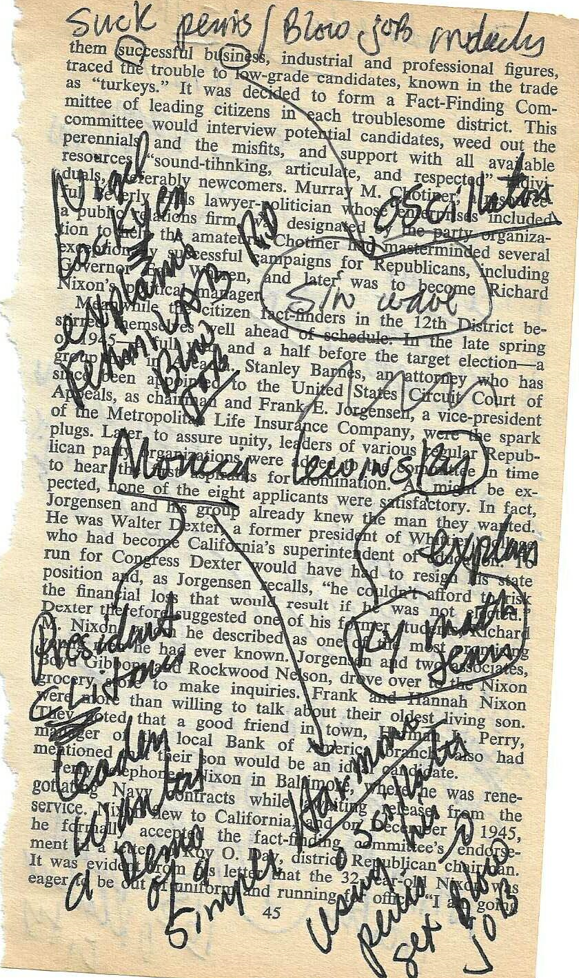 Suck penis / Blow job
them successful business, industrial and professional figures,
traced the trouble to low-grade candidates, known in the trade
as "turkeys." It was decided to form a Fact-Finding Com-
mittee of leading citizens in each troublesome district. This
committee would interview potential candidates, weed out the
perennials and the misfits, and support with all available
resources "sound-tihnking, articulate, and respected"
preferably newcomers. Murray M. Chotiner,
lawyer-politician whose included
a public relations firm, designated the party organiza-
the Chotiner had masterminded several
successful campaigns for Republicans, including
Governor and later was to become Richard
Nixon's manager.
oscillator
Sin wave
Nigel
explains
Blow
JOB
Meanwhile the citizen fact-finders in the 12th District be-
themselves well ahead of schedule. In the late spring
of 1945 and a half before the target election—a
Stanley Barnes, an attorney who has
since been appointed to the United States Circuit Court of
Appeals, as chairman and Frank E. Jorgensen, a vice-president
of the Metropolitan Life Insurance Company, were the spark
plugs. Later, to assure unity, leaders of various regular Repub-
lican party organizations were in time
to hear the applicants for nomination. As might be ex-
pected, none of the eight applicants were satisfactory. In fact,
Jorgensen and his group already knew the man they wanted.
Monica
He was Walter Dexter, a former president of
who had become California's superintendent of
run for Congress Dexter would have had to resign his state
position and, as Jorgensen recalls, "he couldn't afford to risk
the financial loss that would result if he was not elected."
Dexter therefore suggested one of his former Richard
M. Nixon he described as one of the most
he had ever known. Jorgensen and two associates,
Boyd Gibbons and Rockwood Nelson, drove over the Nixon
grocery store to make inquiries. Frank and Hannah Nixon
were more than willing to talk about their oldest living son.
They noted that a good friend in town, Perry,
manager of local Bank of America branch, also had
mentioned their son would be an ideal candidate.
Perry telephoned Nixon in Baltimore, where he was rene-
gotiating Navy contracts while awaiting releases from the
service. Nixon flew to California, and on December 1945,
he formally accepted the fact-finding committee's endorse-
ment letter Roy O. Day, district Republican chairman.
It was evident from a letter that the 32-year-old Nixon was
eager to be out of uniform and running office. "I am going
explain
Ky math
President
Leader
wanted
a Demo
of a
Simple
Harmonic
oscillator
using his
penis
sex Blow
JOB
45